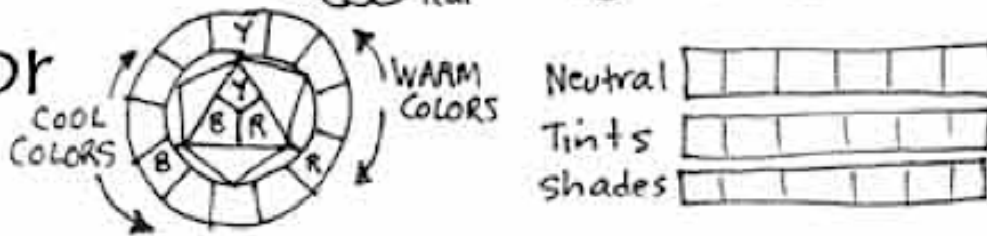 or
COOL
COLORS
Y
Y
B R
B
R
WARM
COLORS
Neutral
Tints
shades